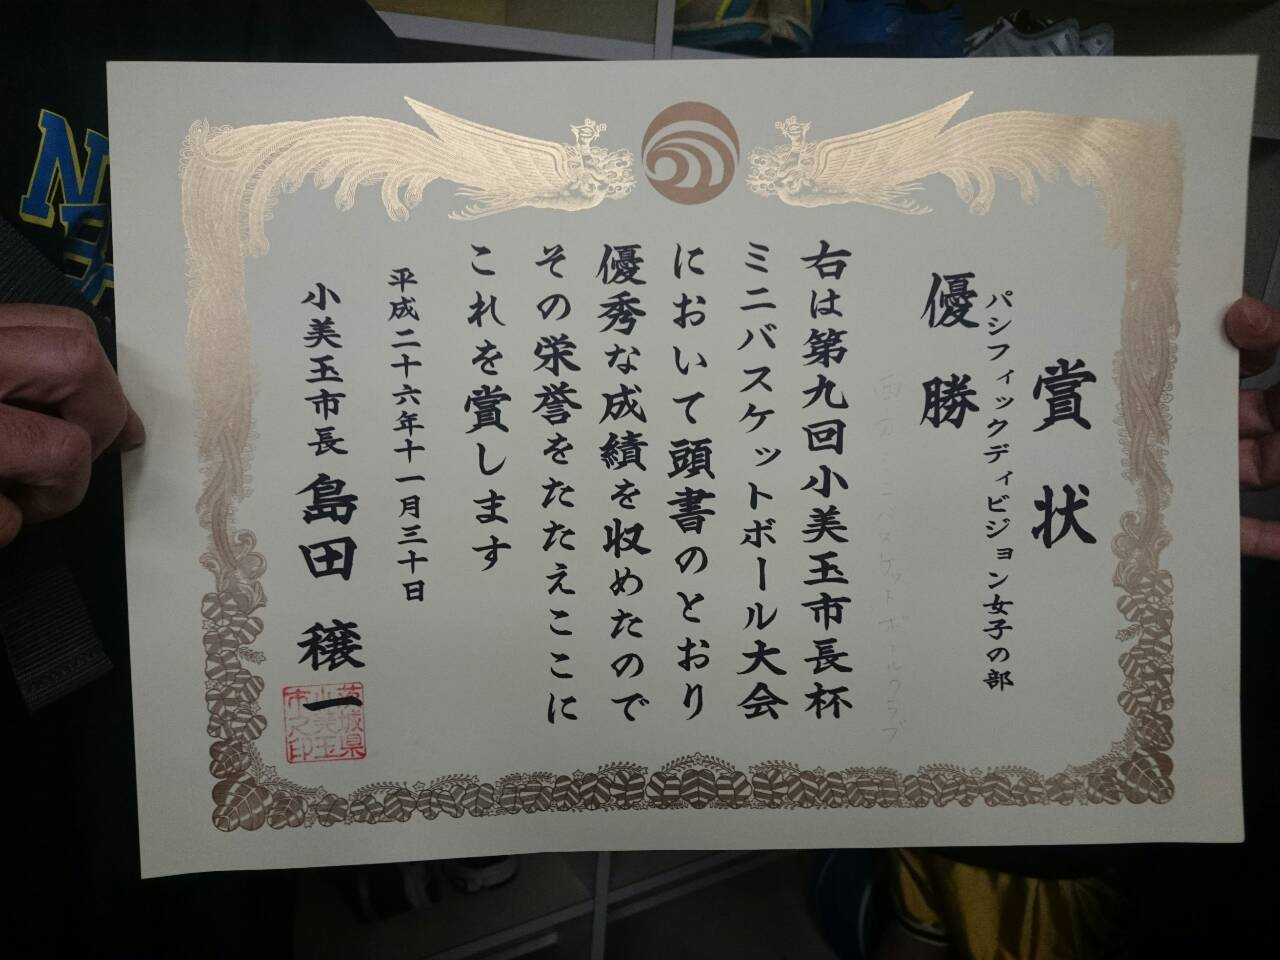 賞状
パシフィックディビジョン女子の部
優勝
ミニバスケットボールクラブ
右は第九回小美玉市長杯
ミニバスケットボール大会
において頭書のとおり
優秀な成績を収めたので
その栄誉をたたえここに
これを賞します
平成二十六年十一月三十日
小美玉市長 島田穣一
茨城県
小美玉
市之印